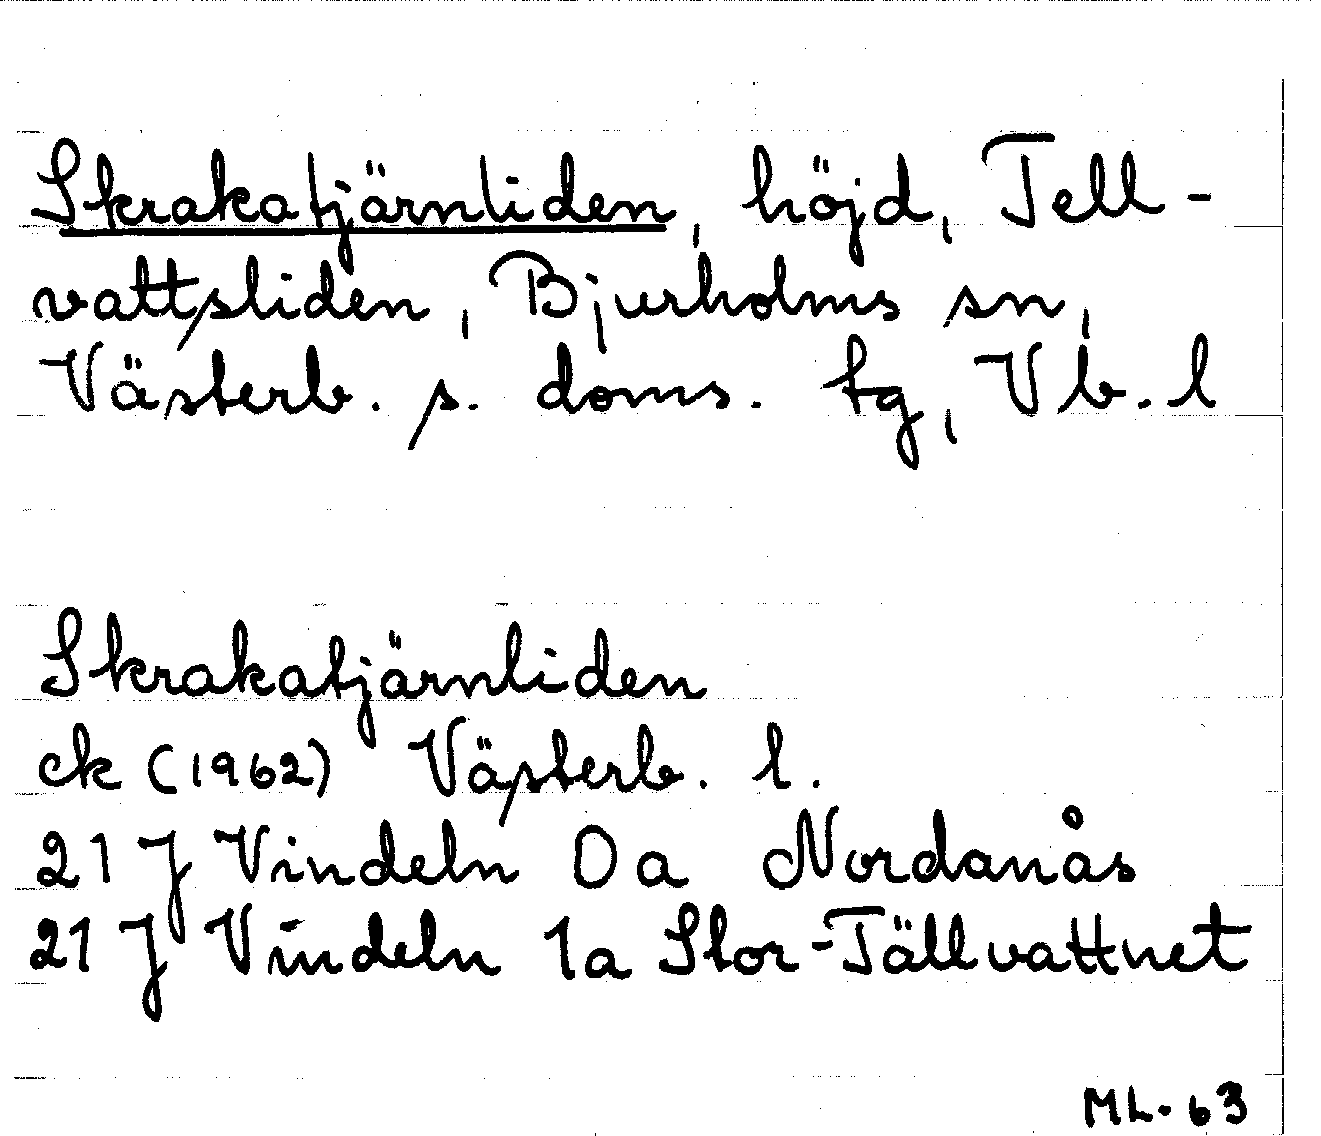 Skrakatjärnliden, höjd, Tell-
vattsliden, Bjurholms sn,
Västerb. s. doms. tg, Vb. l
Skrakatjärnliden
ek (1962) Västerb. l.
21 J Vindeln 0a Nordanås
21 J Vindeln 1a Stor-Tällvattnet
ML. 63